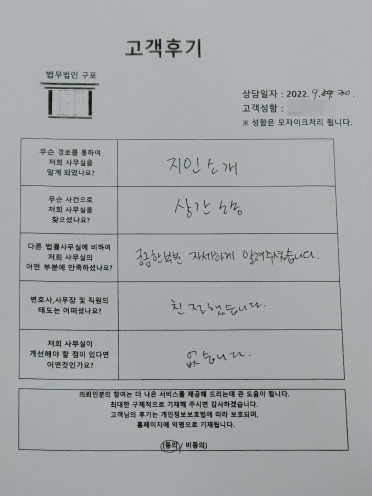 고객후기
법무법인 구포
상담일자 : 2022. 9. 30.
고객성함 :
※ 성함은 모자이크처리 됩니다.
무슨 경로를 통하여
저희 사무실을
알게 되었나요?
지인소개
무슨 사건으로
저희 사무실을
찾으셨나요?
상간 소송
다른 법률사무실에 비하여
저희 사무실의
어떤 부분에 만족하셨나요?
궁금한부분 자세하게 알려주셨습니다.
변호사,사무장 및 직원의
태도는 어떠셨나요?
친절했습니다.
저희 사무실이
개선해야 할 점이 있다면
어떤것인가요?
없습니다.
의뢰인분의 참여는 더 나은 서비스를 제공해 드리는데 큰 도움이 됩니다.
최대한 구체적으로 기재해 주시면 감사하겠습니다.
고객님의 후기는 개인정보보호법에 따라 보호되며,
홈페이지에 익명으로 기재됩니다.
(동의 / 비동의)